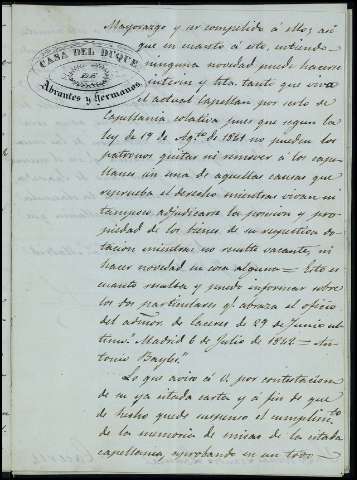 CASA DEL DUQUE
DE
Abrantes y Hermanos
Mayorazgo y ser compelido á ello; así
que en cuanto á esto, entiendo
ninguna novedad puede hacerse
interin y tanto que viva
el actual Capellan por serlo de
Capellanía colativa pues que segun la
ley de 19 de Agto. de 1841 no pueden los
patronos quitar ni remover á los cape-
llanes sin una de aquellas causas que
reprueba el derecho mientras vivan ni
tampoco adjudicarse la posesion y pro-
piedad de los bienes de su respectiva do-
tacion mientras no resulte vacante, ni
hacer novedad en cosa alguna = Esto es
cuanto resulta y puedo informar sobre
los dos particulares q.e abraza el oficio
del admor. de Caceres de 29 de Junio ul-
timo. Madrid 6 de Julio de 1842 = An-
tonio Bayle."
Lo que aviso á V. por contestacion
de su ya citada carta y á fin de que
de hecho quede suspenso el cumplim.to
de la memoria de misas de la citada
capellania, aprobando en un todo